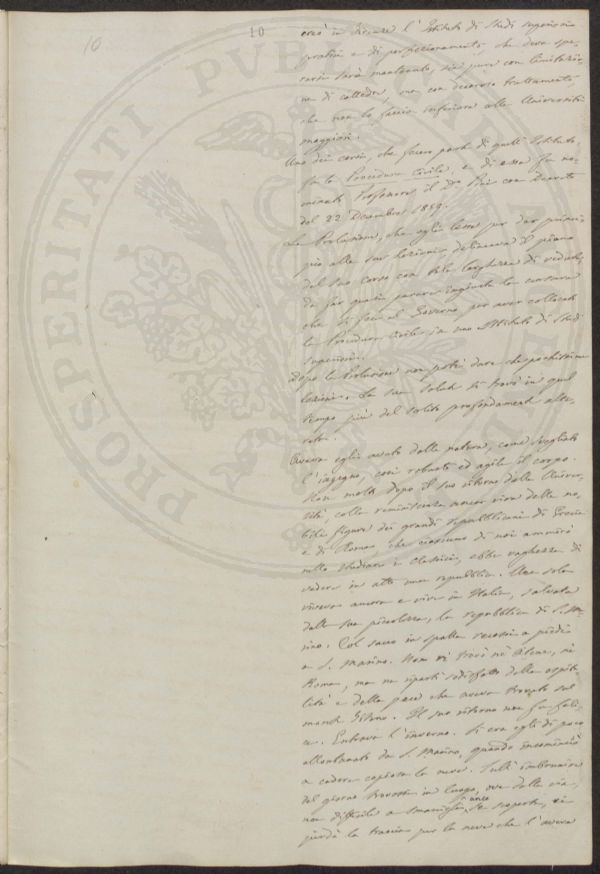 10
10
creò in Firenze l'Istituto di Studi superiori
pratici e di perfezionamento, che deve spe-
rarsi sarà mantenuto, sia pure con limitazio-
ne di cattedre, ma con decoroso trattamento,
che non lo faccia inferiore alle Università
maggiori.
Uno dei corsi, che faceva parte di quell'Istituto,
fu la Procedura Civile, e di essa fu no-
minato Professore il Dr. Pini con Decreto
del 22 Dicembre 1859.
La Prolusione, che egli lesse per dar princi-
pio alle sue lezioni, delineava il piano
del suo corso con tale larghezza di vedute,
da far quasi parere ingiusta la censura
che si fece al Governo, per aver collocata
la Procedura Civile in uno Istituto di Studi
superiori.
Dopo la Prolusione non potè dare che pochissime
lezioni. La sua salute si trovò in quel
tempo più del solito profondamente alte-
rata.
Aveva egli avuto dalla natura, come svegliato
l'ingegno, così robusto ed agile il corpo.
Non molto dopo il suo ritorno dalla Univer-
sità, colla reminiscenza ancor viva delle no-
bili figure dei grandi repubblicani di Grecia
e di Roma che ciascuno di noi ammirò
nello studiare i classici, ebbe vaghezza di
vedere in atto una repubblica. Una sola
viveva ancora e vive in Italia, salvata
dalla sua piccolezza, la repubblica di S. Ma-
rino. Col sacco in spalla recossi a piedi
a S. Marino. Non vi trovò nè Atene, nè
Roma, ma ne ripartì sodisfatto della ospita-
lità e della pace che aveva trovato sul
monte Titano. Il suo ritorno non fu feli-
ce. Entrava l'inverno. Si era egli di poco
allontanato da S. Marino, quando incominciò
a cadere copiosa la neve. Sull'imbrunire
del giorno trovossi in luogo, ove della via,
non difficile a smarrirsi anco se scoperta,
perdè la traccia per la neve che l'aveva
PROSPERITATI PUBLICAE